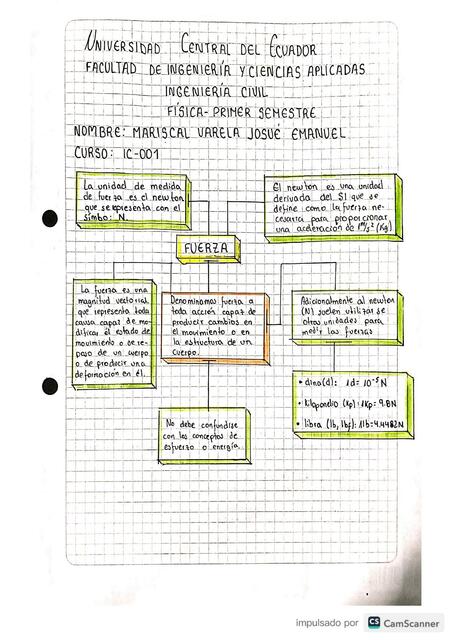 UNIVERSIDAD CENTRAL DEL ECUADOR
FACULTAD DE INGENIERÍA Y CIENCIAS APLICADAS
INGENIERÍA CIVIL
FÍSICA- PRIMER SEMESTRE
NOMBRE: MARISCAL VARELA JOSUÉ EMANUEL
CURSO: IC-001
La unidad de medida
de fuerza es el newton
que se representa con el
símbo: N.
El newton es una unidad
derivada del SI que se
define como la fuerza ne-
cesaria para proporcionar
una aceleración de 1m/s² (Kg)
FUERZA
La fuerza es una
magnitud vectorial
que representa toda
causa capaz de mo-
dificar el estado de
movimiento o de re-
poso de un cuerpo
o de producir una
deformación en él.
Denominamos fuerza a
toda acción capaz de
producir cambios en
el movimiento o en
la estructura de un
cuerpo.
Adicionalmente al newton
(N) suelen utilizarse
otras unidades para
medir las fuerzas
• dina(d): 1d= 10⁻⁵N
• Kilopondio (Kp): 1Kp= 9.8N
• libra (lb, lbf): 1lb=4.4482N
No debe confundirse
con los conceptos de
esfuerzo o energía.
impulsado por CS CamScanner